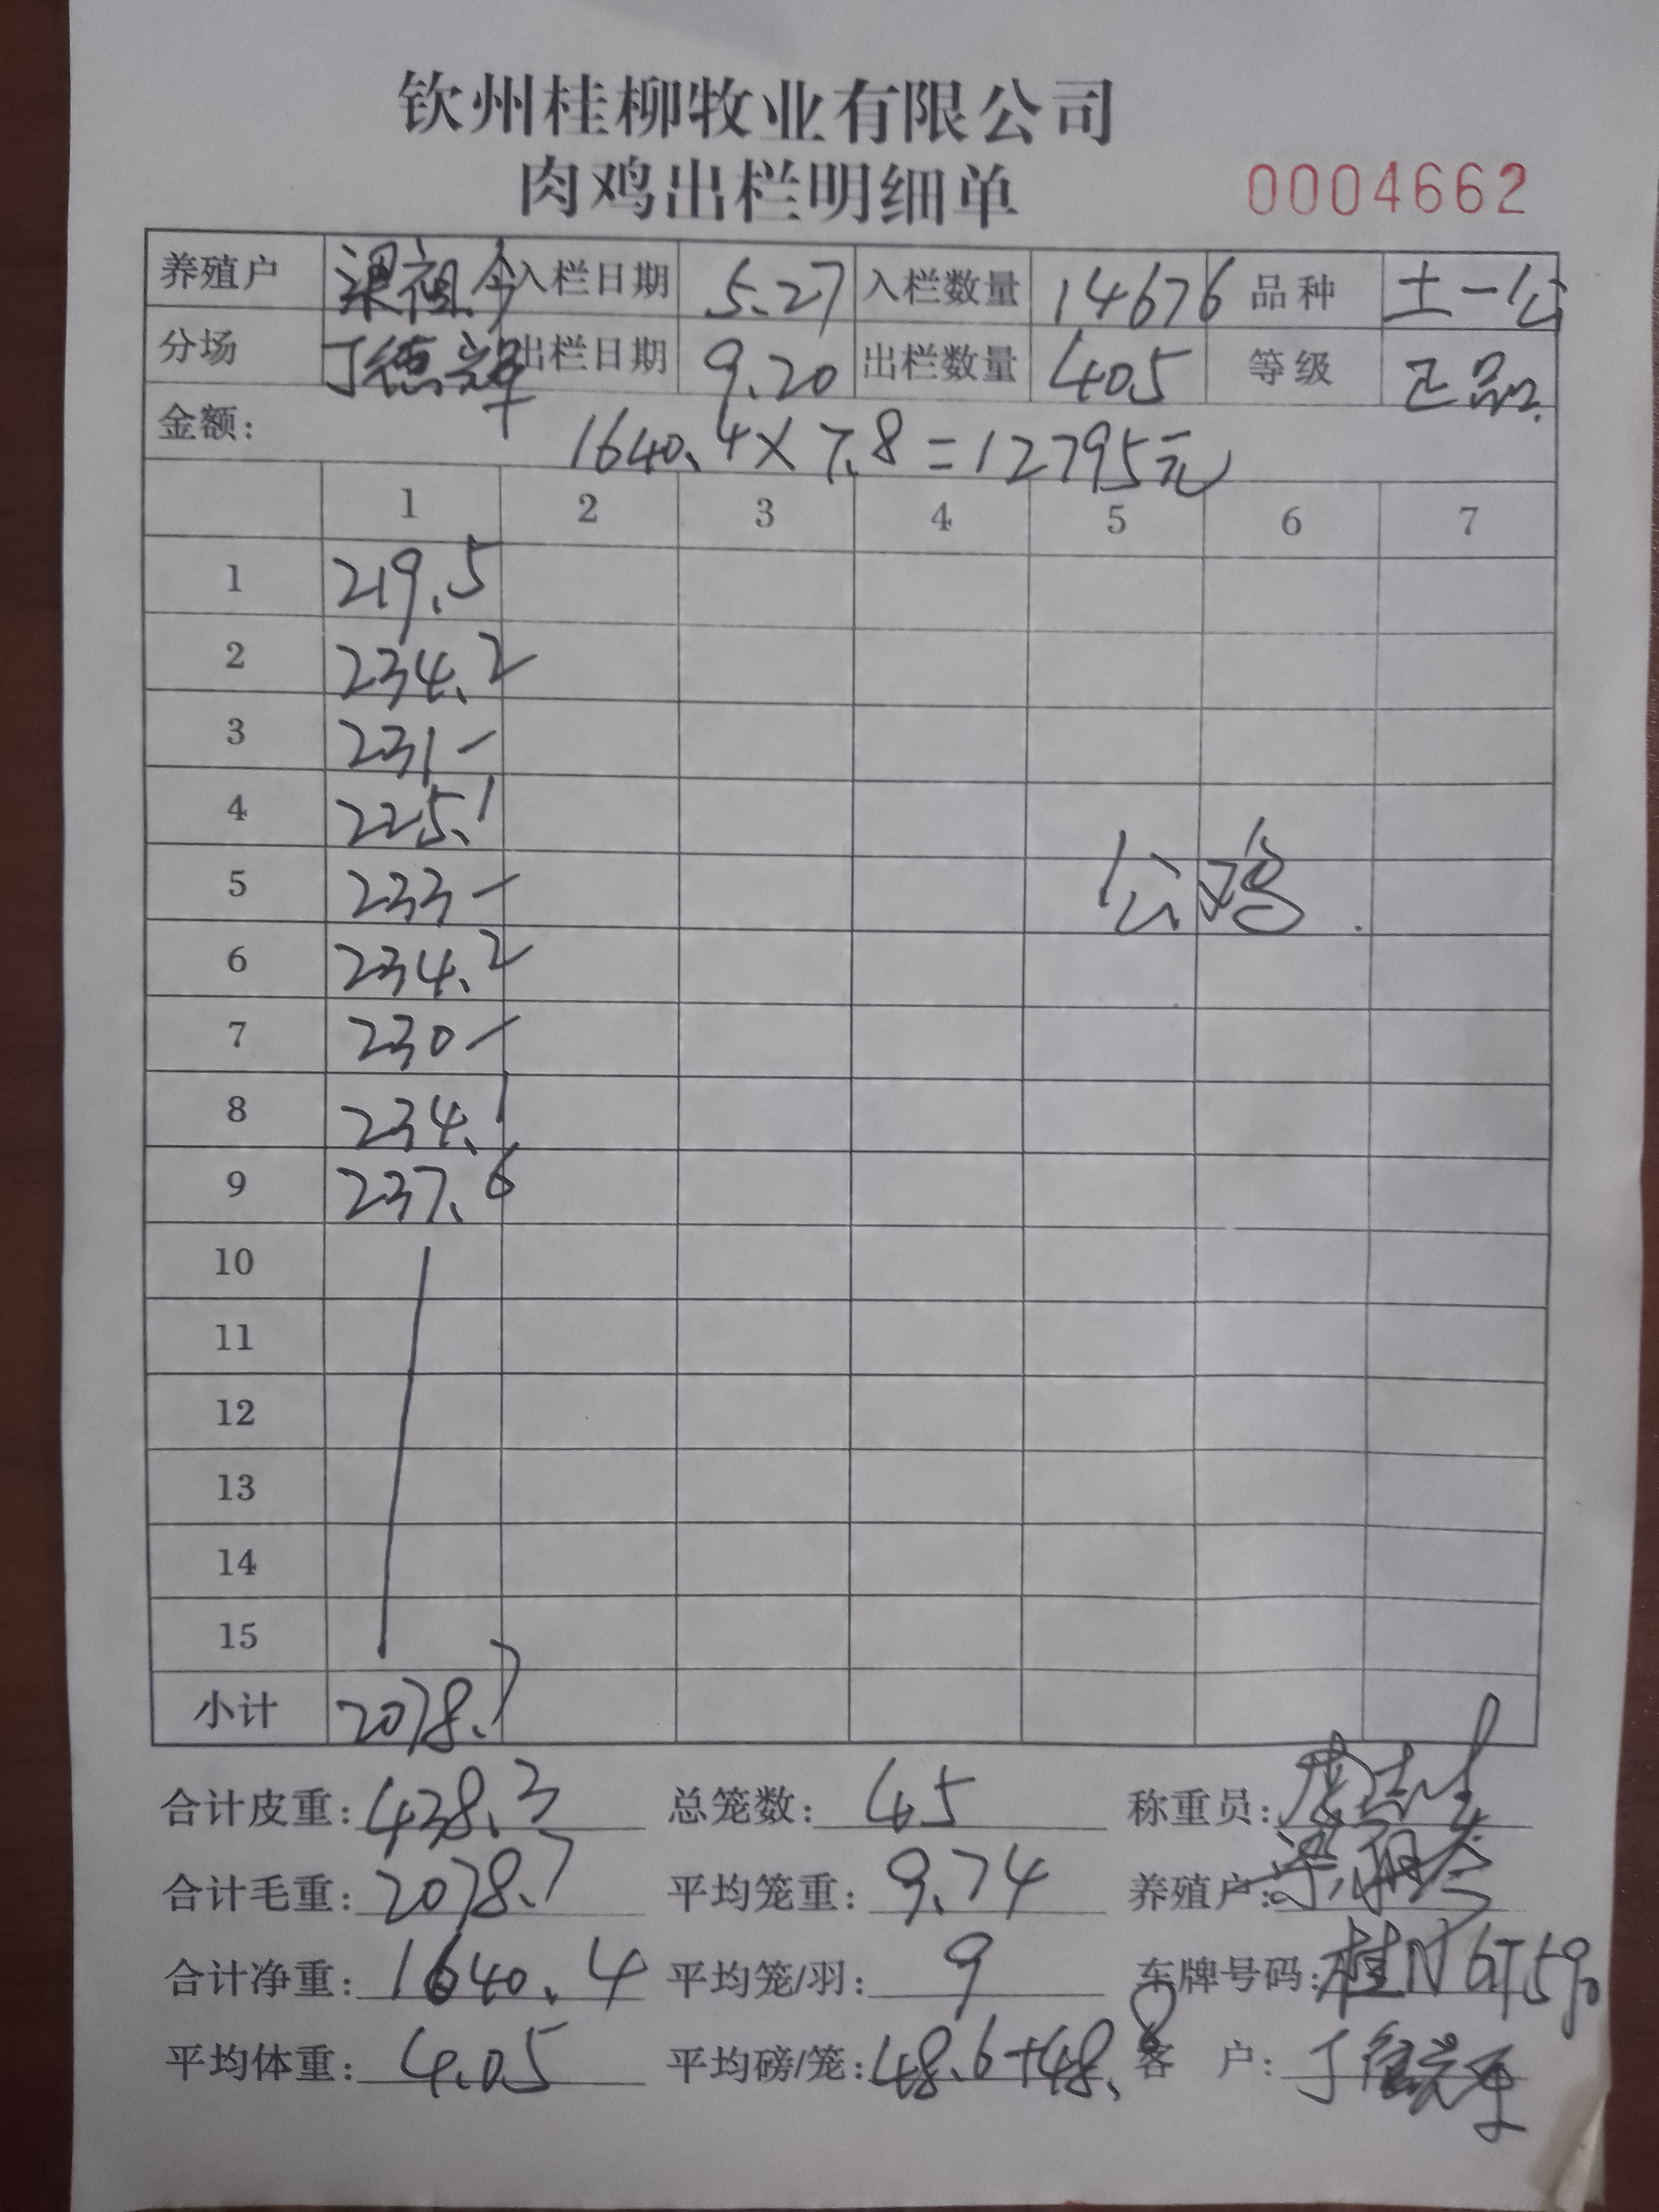 钦州桂柳牧业有限公司
肉鸡出栏明细单 0004662
养殖户 梁祖 入栏日期 5.27 入栏数量 14676 品种 土一公
分场 丁德 出栏日期 9.20 出栏数量 405 等级 正品.
金额: 1640.4×7.8=12795元
1 2 3 4 5 6 7
1 219.5
2 234.2
3 231-
4 225.1
5 233- 公鸡.
6 234.2
7 230-
8 234.1
9 237.6
10
11
12
13
14
15
小计 2078.7
合计皮重: 438.3 总笼数: 45 称重员:
合计毛重: 2078.7 平均笼重: 9.74 养殖户: 梁
合计净重: 1640.4 平均笼/羽: 9 车牌号码: 桂N
平均体重: 4.05 平均磅/笼: 48.6+48.8 客户: 丁